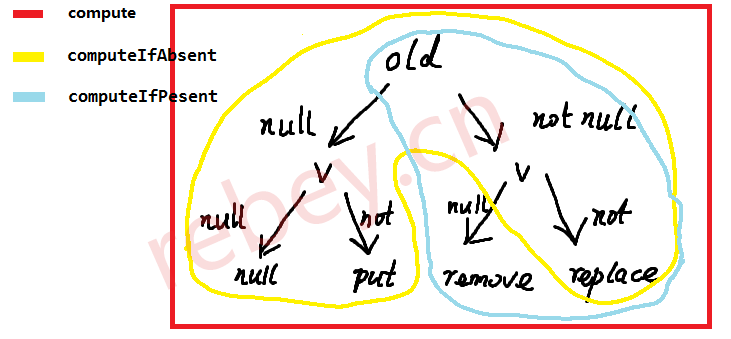 compute
computeIfAbsent
computeIfPesent
old
null
not null
v
v
null
not
null
not
null
put
remove
replace
rebey.cn